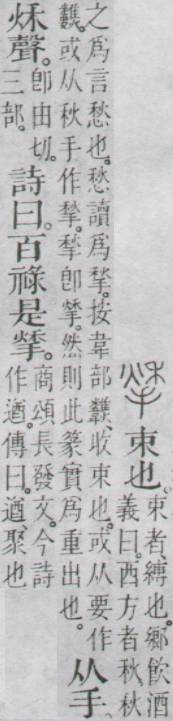 束也。束者、縛也。鄉飲酒
義曰。西方者秋。秋
之爲言愁也。愁讀爲揫。按韋部𩏷、收束也。或从要作
𩏷。或从秋手作揫。揫卽揫。然則此篆實爲重出也。
从手、
秌聲。卽由切。
三部。
詩曰。百祿是揫。商頌長發文。今詩
作遒。傳曰。遒聚也